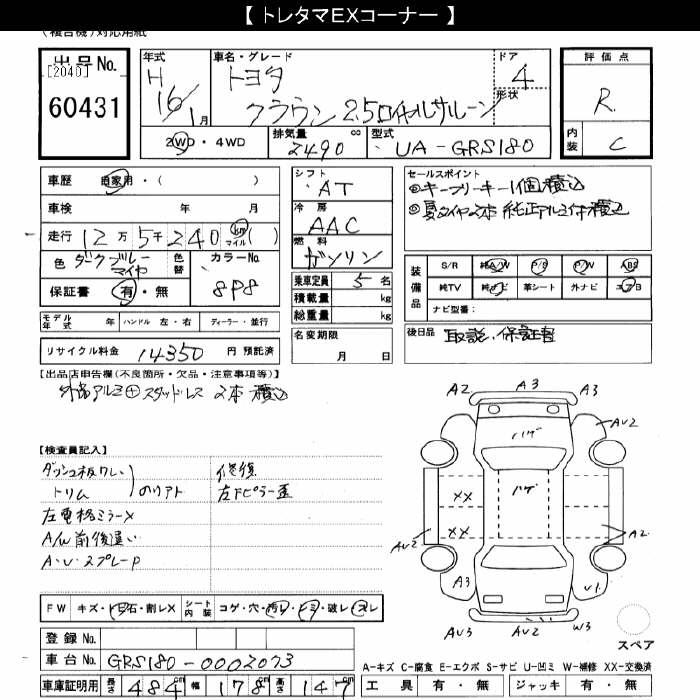 【 トレタマEXコーナー 】
(複合機)対応用紙
出品No.
[2040]
60431
年式
H
16/1月
車名・グレード
トヨタ
クラウン 2.5ロイヤルサルーン
ドア
4
形状
2WD・4WD
排気量 cc
2490
型式
UA-GRS180
評価点
R
内装
C
車歴 自家用・( )
車検 年 月
走行 12万5千240 km マイル ( )
色 ダークブルーマイカ
色替
カラーNo.
8P8
保証書 有・無
シフト
AT
冷房
AAC
燃料
ガソリン
乗車定員 5名
積載量 kg
総重量 kg
セールスポイント
◎キーフリーキー1個積込
◎夏タイヤ2本 純正アルミ付積込
装備品
S/R 純A/W P/S P/W ABS
純TV 純ナビ 革シート 外ナビ エアB
ナビ型番:
モデル年式 年 ハンドル 左・右 ディーラー・並行
リサイクル料金 14350 円 預託済
名変期限
月 日
後日品 取説、保証書
【出品店申告欄(不良箇所・欠品・注意事項等)】
外品アルミ+スタッドレス 2本積込
【検査員記入】
ダッシュ板ワレ
トリム
のりアト
左電格ミラーX
A/W前後違い
A・U・スプレーP
修復
左Fピラー歪
A2 A3 A3
AU2
ハゲ
XX ハゲ
XX
AU2 A2
A3 U1
AU3 AU2 W3
スペア
FW キズ・飛石・割レX シート内装 コゲ・穴・汚レ・シミ・破レ・スレ
登録No.
車台No. GRS180-0002073
車庫証明用 長さ 484cm 幅 178cm 高さ 147cm
A-キズ C-腐食 E-エクボ S-サビ U-凹ミ W-補修 XX-交換済
工具 有・無 ジャッキ 有・無